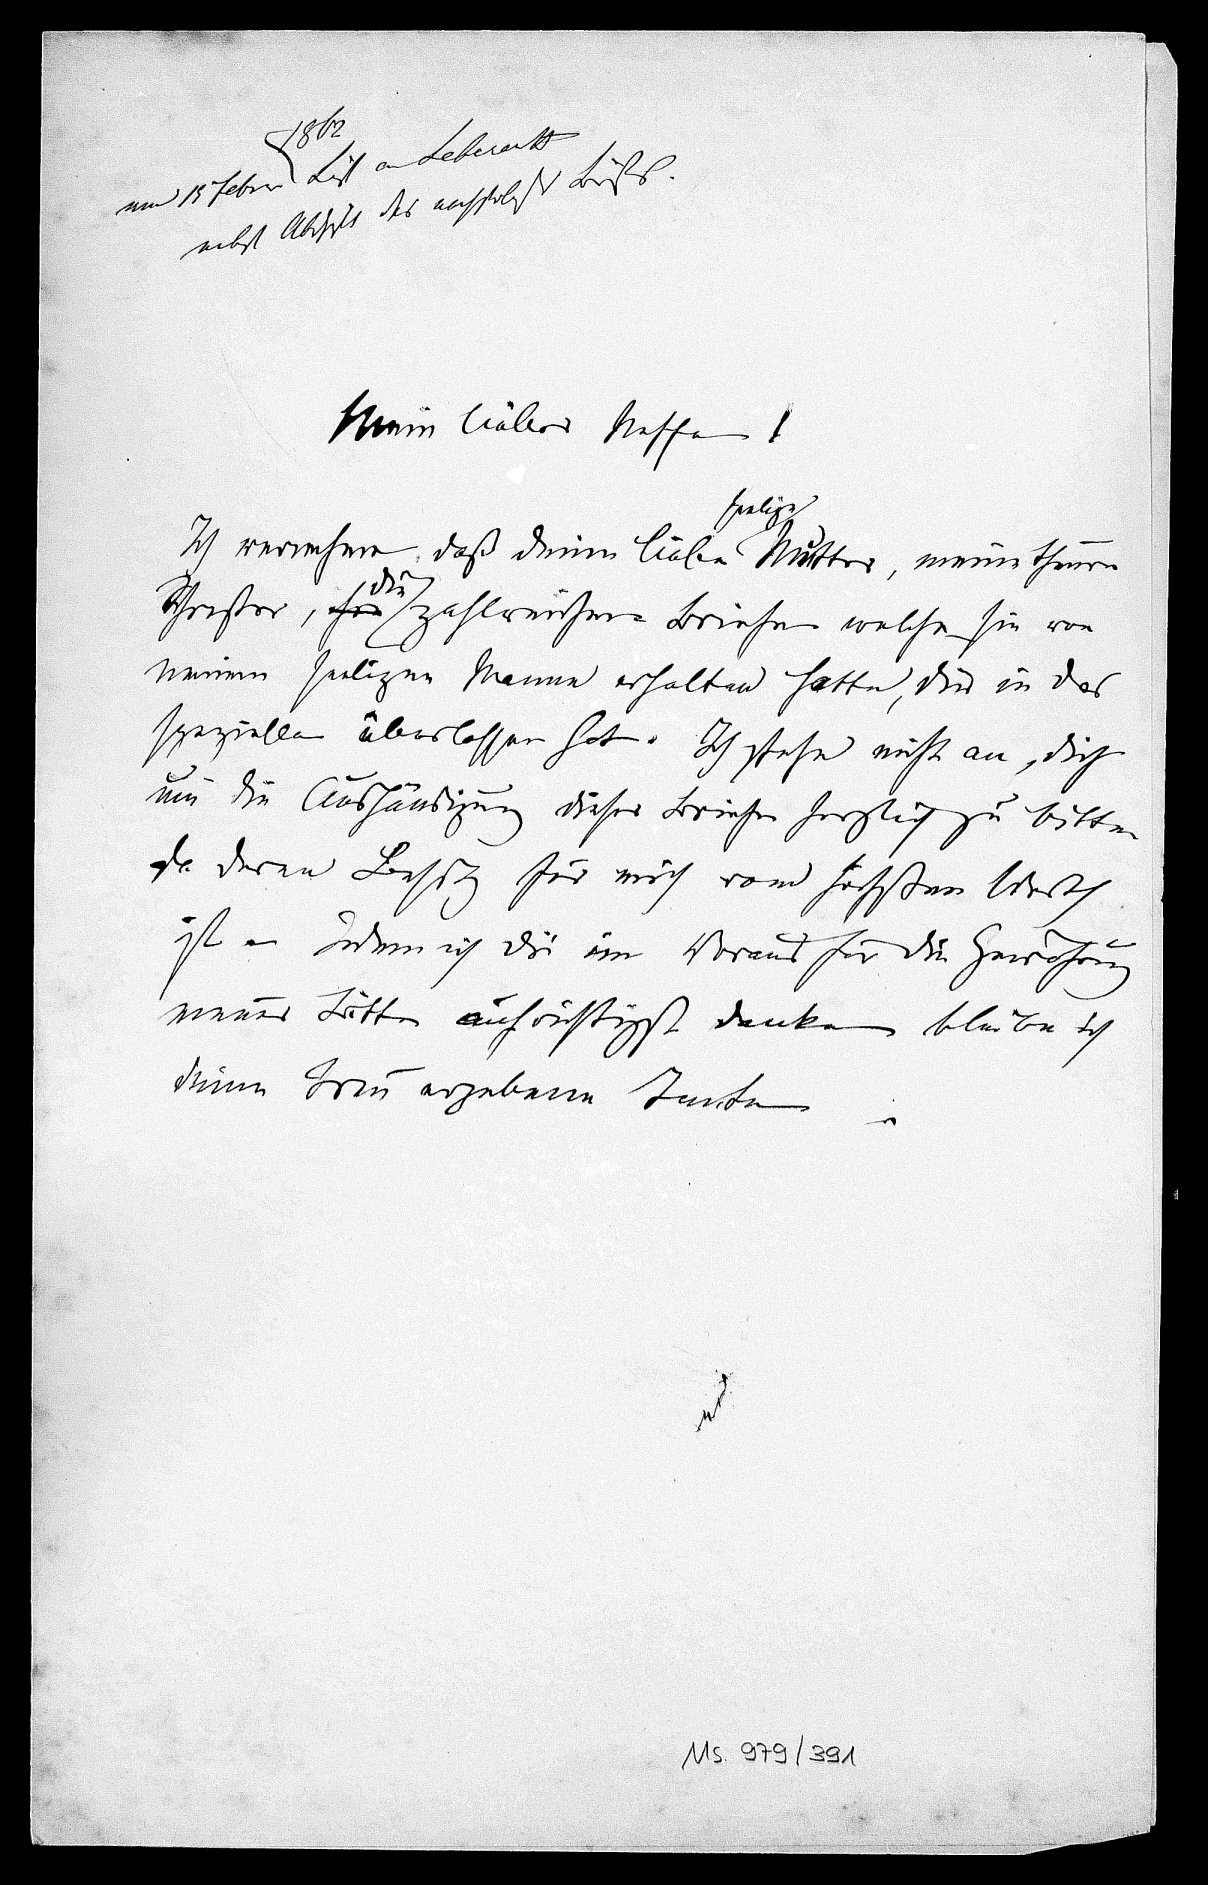 1862
am 15 Febr. an Leberecht
nebst Abschrift des Briefes.
Mein lieber Neffe !
seelige
Ich vernehme daß deine liebe Mutter, meine theure
die
Schwester, zahlreichen Briefe welche sie von
meinem seeligen Manne erhalten hatte, dir in das
spezielle überlassen hat. Ich stehe nicht an, dich
um die Aushändigung dieser Briefe herzlich zu bitten
da deren Besitz für mich vom höchsten Werth
ist. Indem ich dir im Voraus für die Gewährung
meiner Bitte aufrichtigst danke bleibe ich
deine treu ergebene Tante
Ms. 979/391